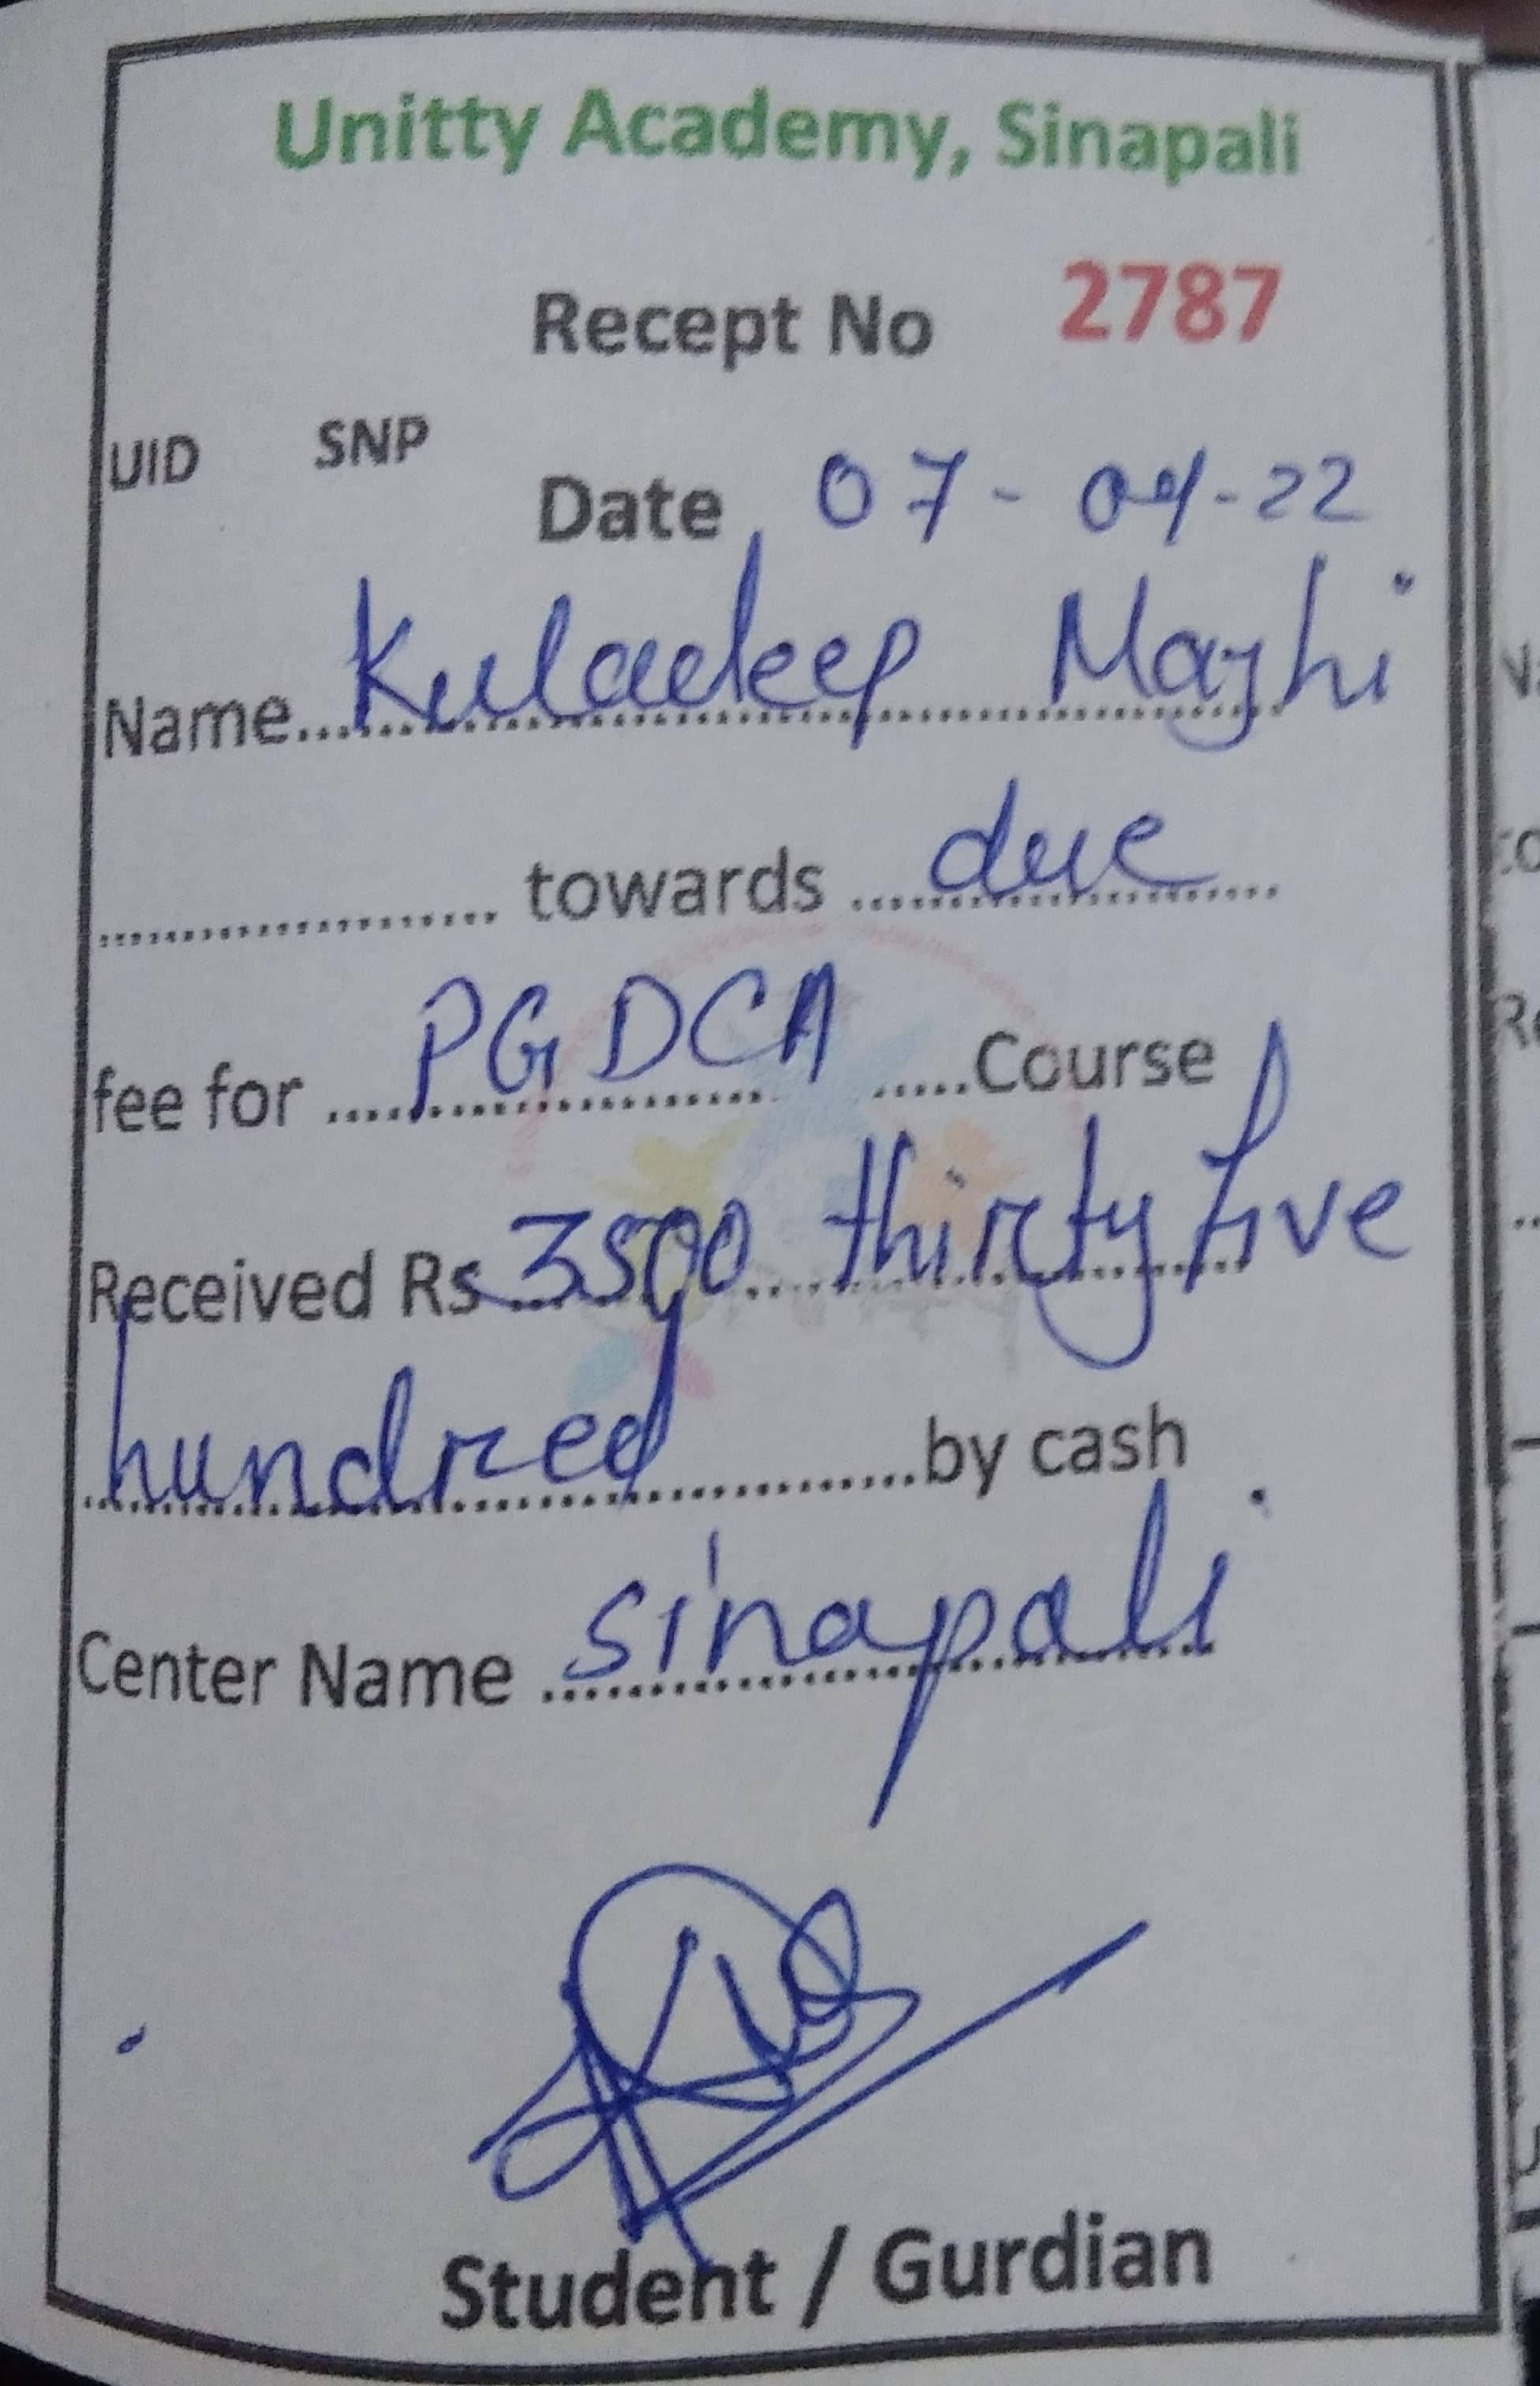 Unitty Academy, Sinapali
Recept No 2787
UID SNP
Date 07-04-22
Name...Kuladeep Majhi
.................... towards ...due...
fee for ...PGDCA.....Course
Received Rs 3500 thirty five
hundred............by cash
Center Name ...sinapali...
Student / Gurdian